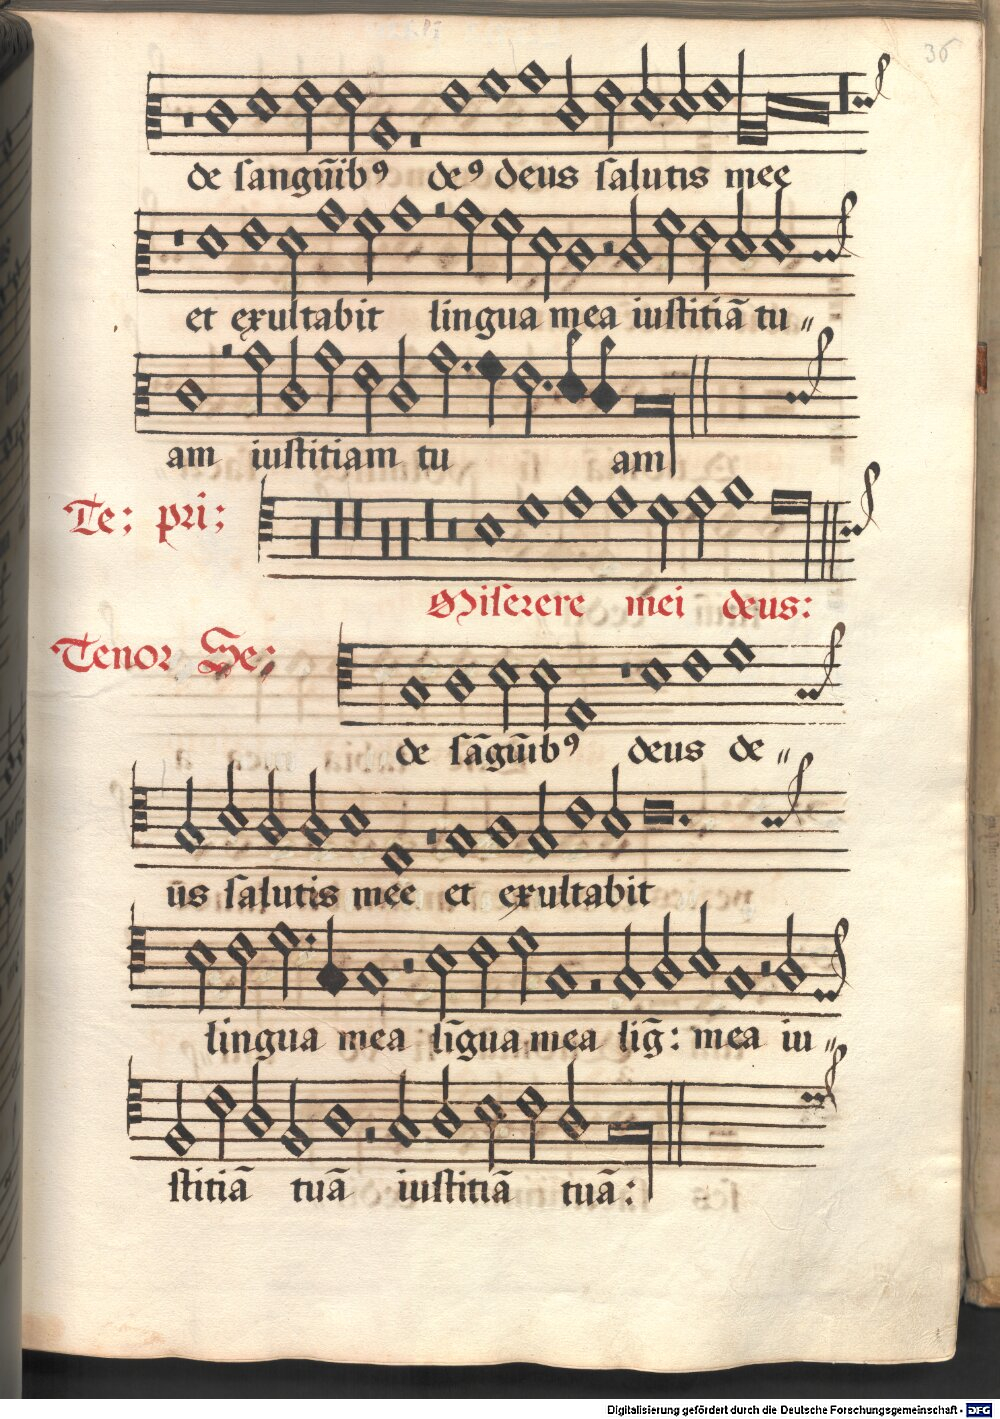 36
de sangūībꝰ deꝰ deus salutis mee
et exultabit lingua mea iustitiā tu〃
am iustitiam tu am
Te: pri:
Miserere mei deus:
Tenor Se:
de sāgūībꝰ deus de〃
ūs salutis mee et exultabit
lingua mea līgua mea līḡ: mea iu〃
stitiā tuā iustitiā tuā:
Digitalisierung gefördert durch die Deutsche Forschungsgemeinschaft - DFG